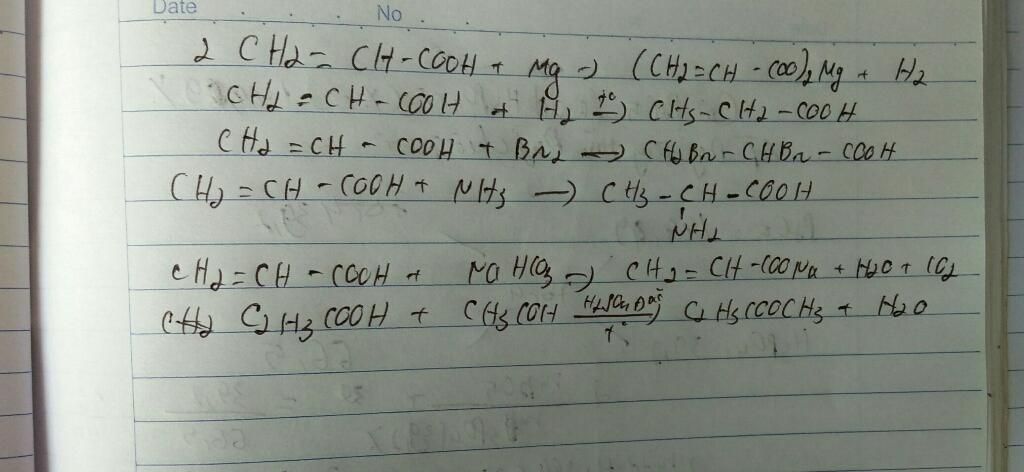 Date No
2 CH2 = CH-COOH + Mg → (CH2=CH-COO)2 Mg + H2
CH2 = CH-COOH + H2 t° → CH3-CH2-COOH
CH2 = CH - COOH + Br2 → CH2Br - CHBr - COOH
CH2 = CH - COOH + NH3 → CH3 - CH - COOH
NH2
CH2 = CH - COOH + NaHCO3 → CH2 = CH-COONa + H2O + CO2
C2H3COOH + H2SO4 Đặc → + H2O
t°